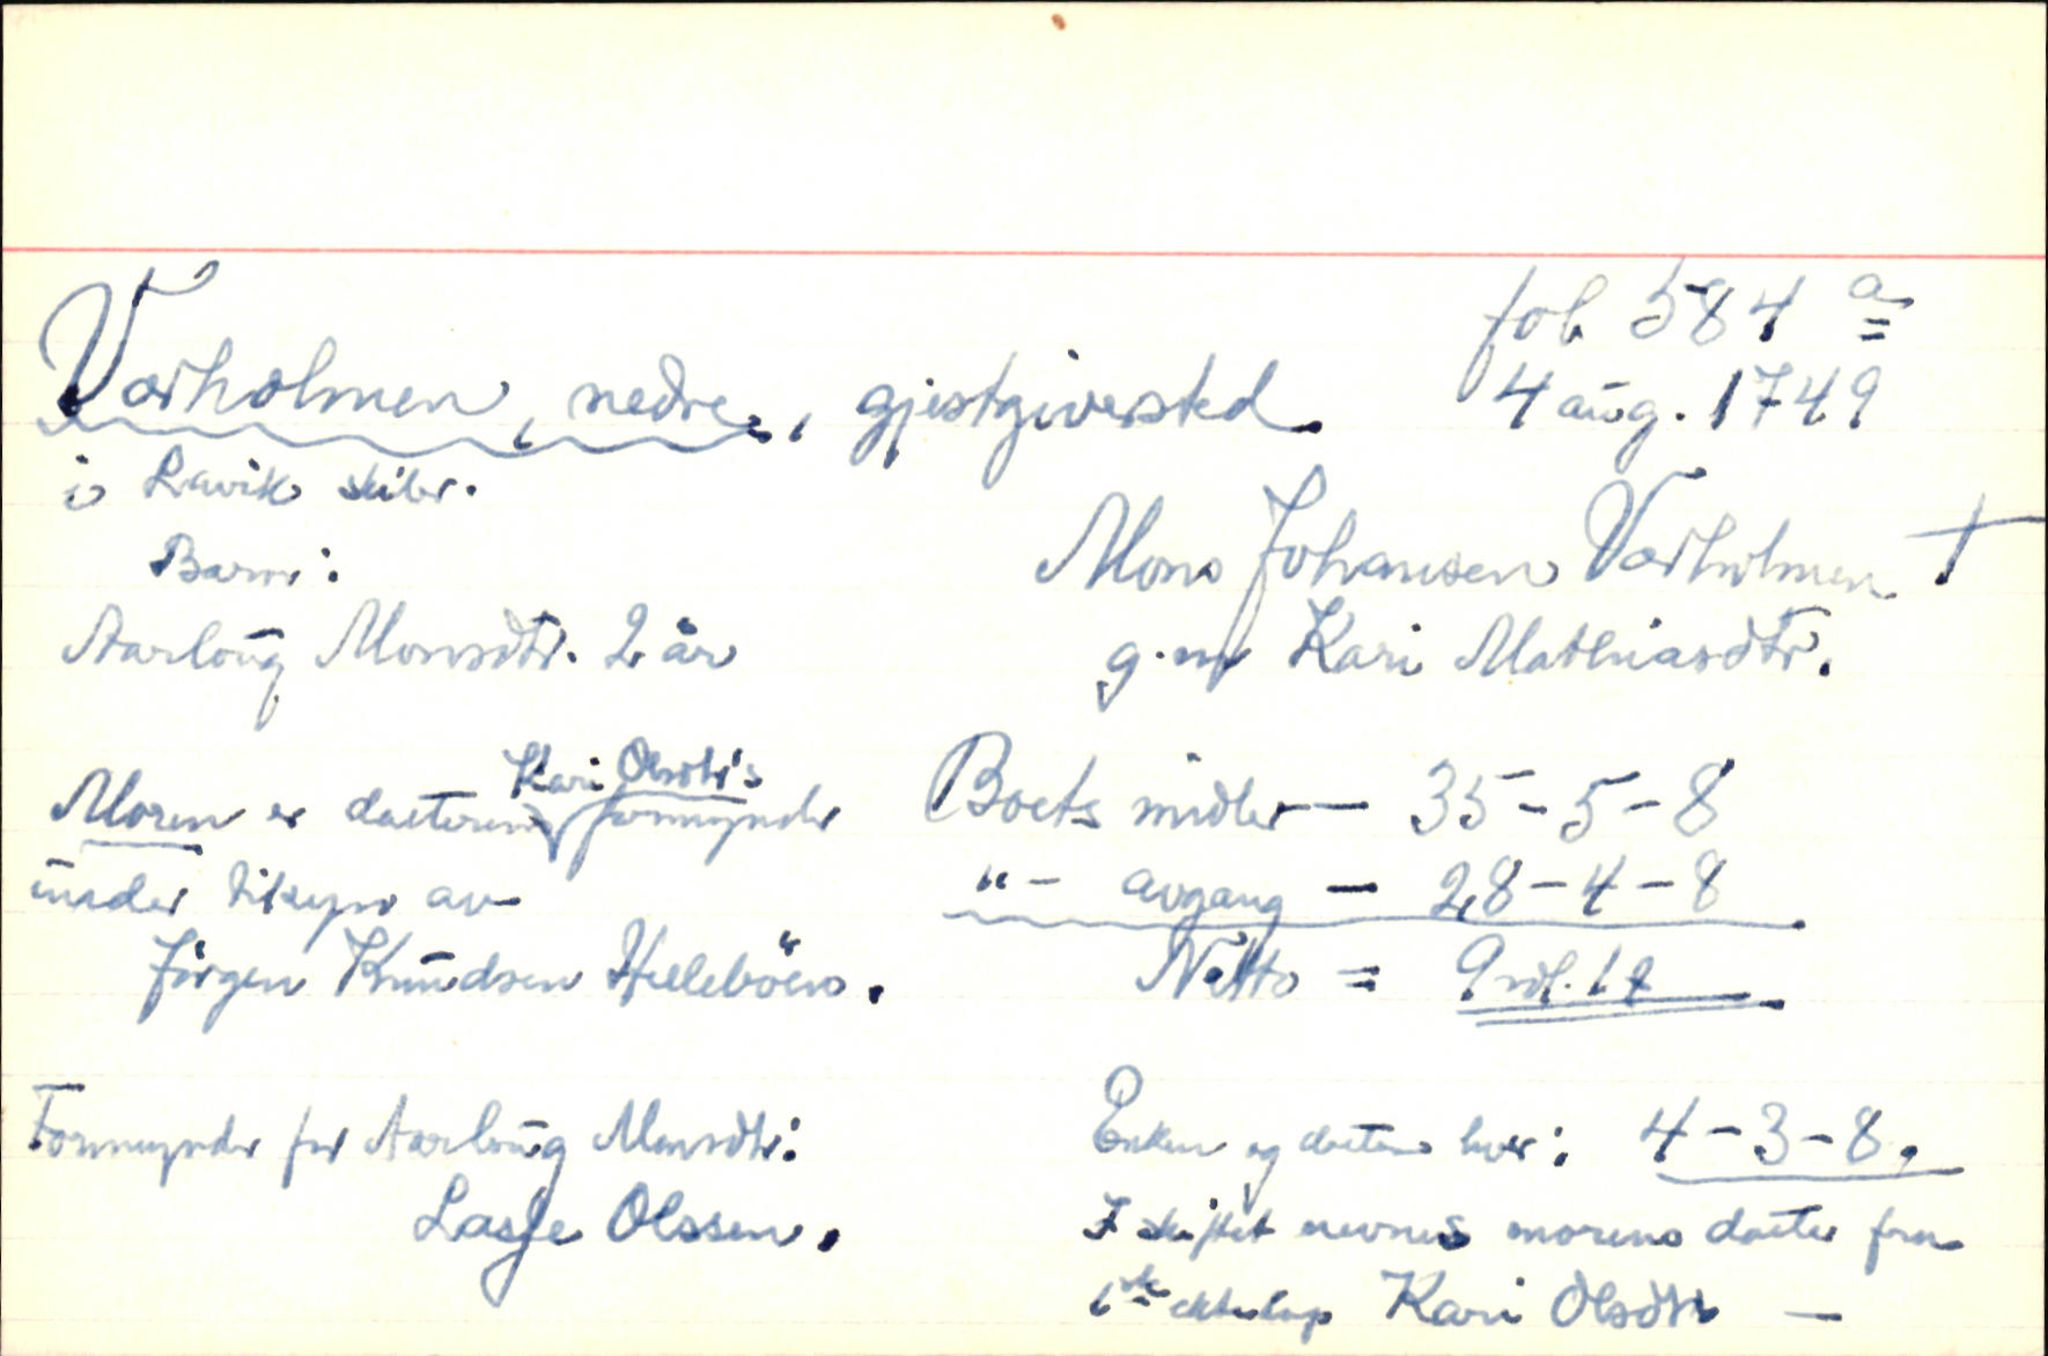 fol. 584 a
Værholmen, nedre, gjestgiversted. 4 aug. 1749
i Lavik skibr.
Mons Johansen Værholmen †
Barn:
Aarloug Monsdtr. 2 år
g.m. Kari Mathiasdtr.
Kari Olsdtr's
Moren er datteren formynder
under tilsyn av
Jörgen Knudsen Helleböen.
Boets midler — 35 - 5 - 8
" - avgang — 28 - 4 - 8
Netto = 9 rdl. 1 #
Formynder for Aarloug Monsdtr:
Lasse Olssen.
Enken og datter hver: 4 - 3 - 8.
I skiftet nevnes morens datter fra
1ste ekteskap Kari Olsdtr —